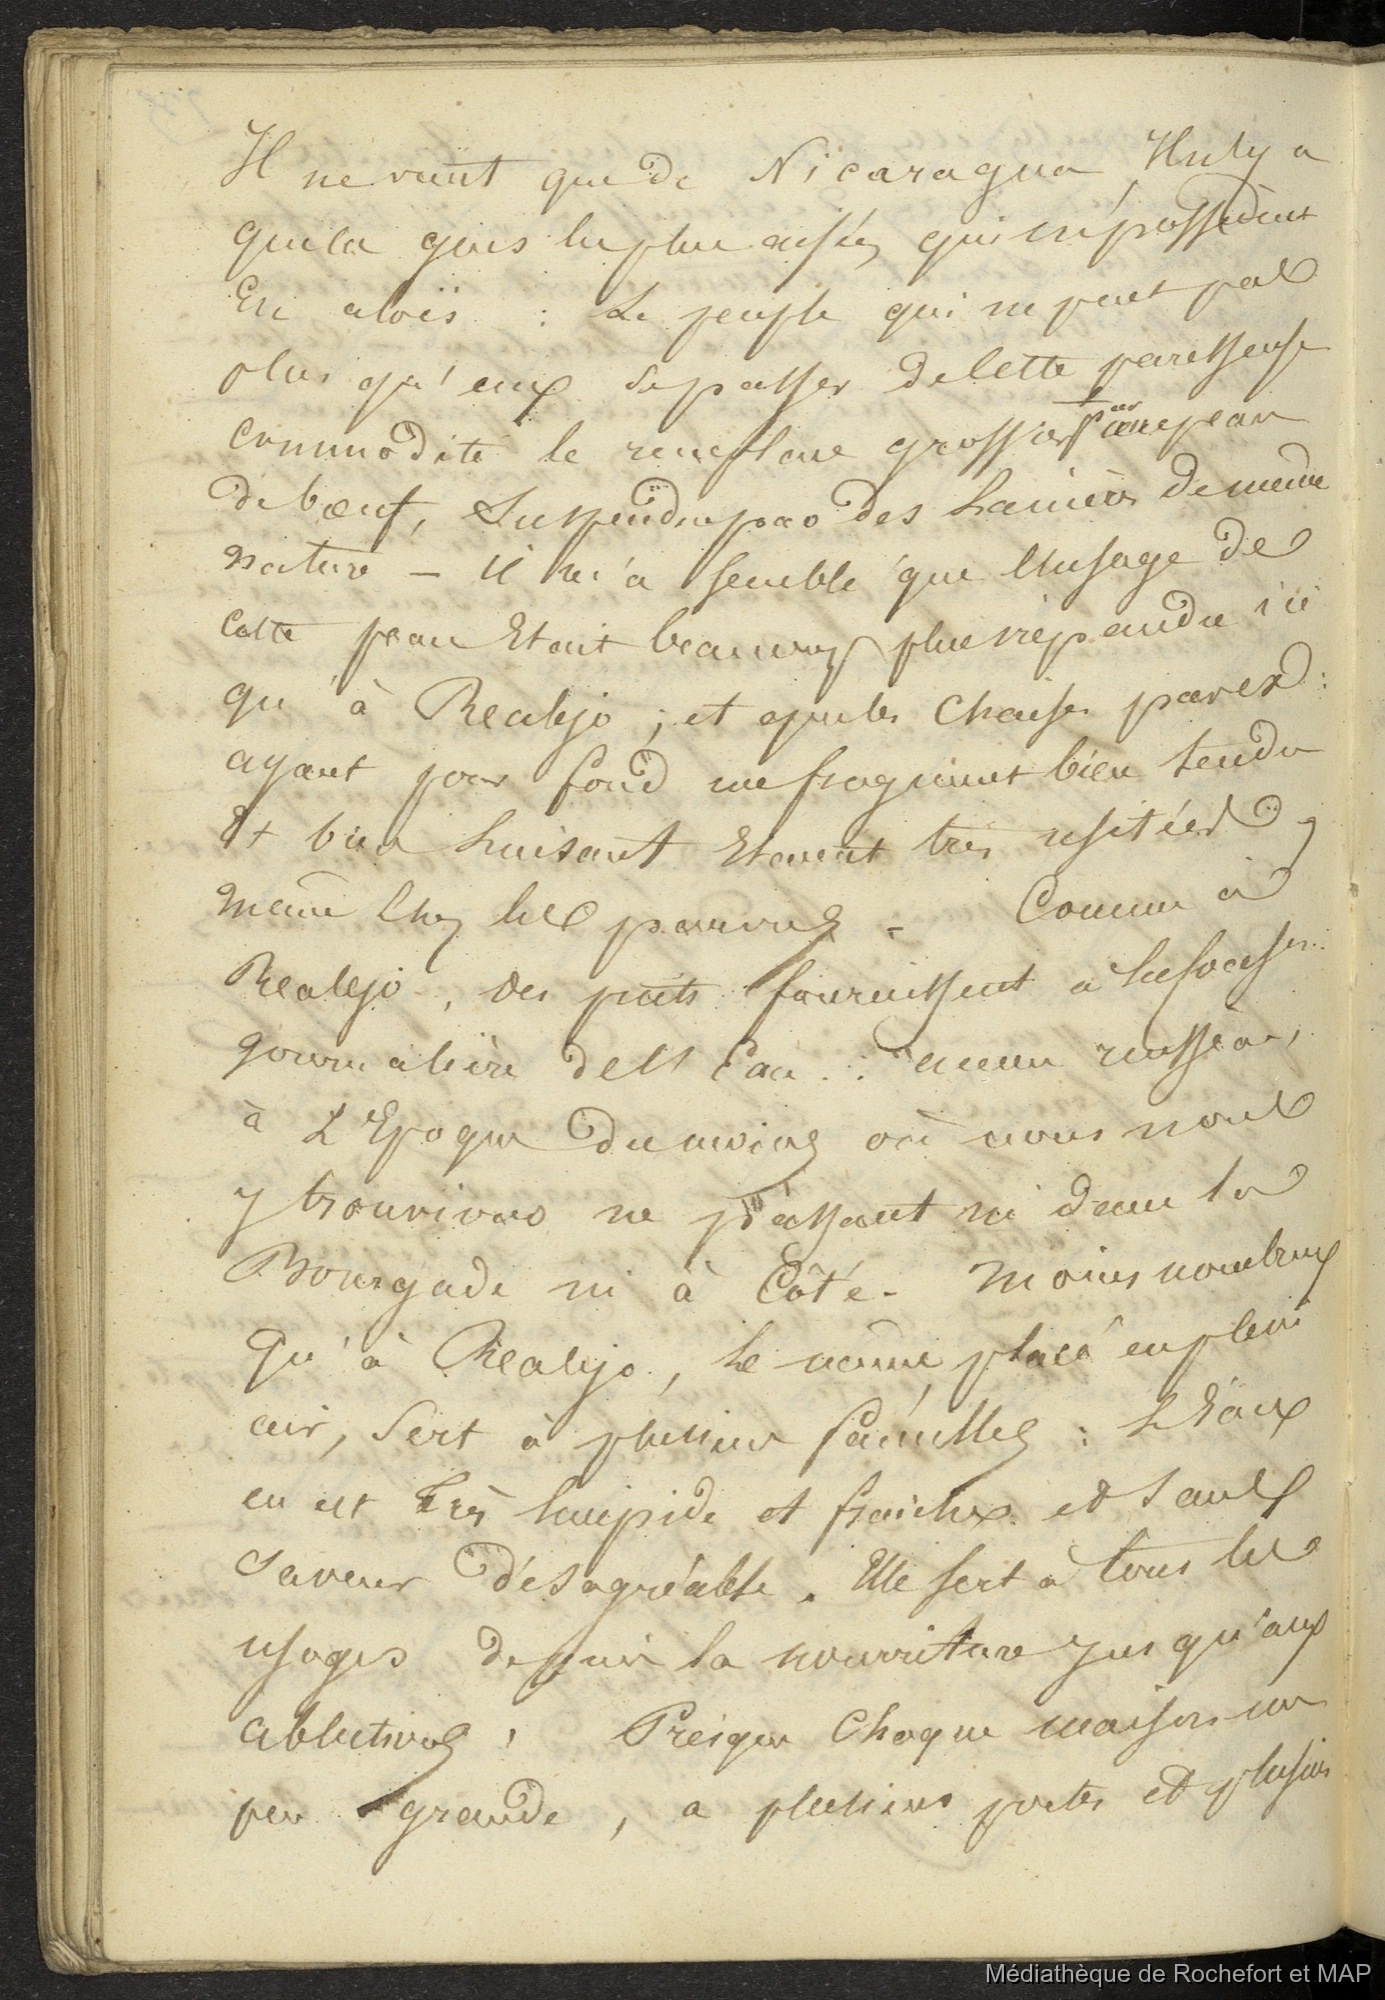 Il ne vient que de Nicaragua, Il n'y a
que les gens les plus aisés qui en possèdent
En aloïs : Le peuple qui ne peut pas
plus qu'eux se passer de cette paresseuse
commodité le remplace grossièrt par une peau
de bœuf, Suspendue par des Lanières de même
nature - il m'a semblé que l'usage de
cette peau Etait beaucoup plus répandu ici
qu'à Realejo ; et que les Chaises
ayant pour fond un fragment bien tendu
Et bien Luisant Etaient très usitées,
même Chez les pauvres - Comme à
Realejo, des puits fournissent à la
journalière de l'Eau : aucun ruisseau,
à L'Epoque du moins où nous nous
y trouvions ne passant ni dans la
Bourgade ni à Côté - Moins nombreux
qu'à Realejo, le même, placé en plein
air, Sert à plusieurs familles : L'Eau
en est très limpide et fraîche et Sans
Saveur désagréable. Elle sert à tous les
usages depuis la nourriture jusqu'aux
ablutions, Presque Chaque maison un
peu grande, a plusieurs portes et plusieurs
Médiathèque de Rochefort et MAP